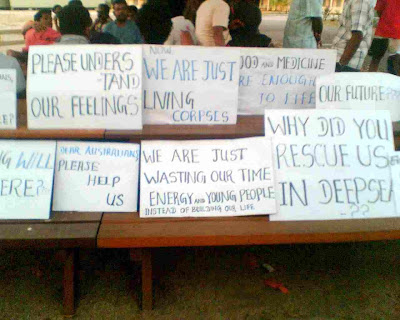 PLEASE UNDERS
-TAND
OUR FEELINGS
NOW
WE ARE JUST
LIVING
CORPSES
FOOD AND MEDICINE
RE ENOUGH
TO LIFE
OUR FUTURE???
WILL
ERE??
DEAR AUSTRALIANS
PLEASE
HELP
US
WE ARE JUST
WASTING OUR TIME
ENERGY AND YOUNG PEOPLE
INSTEAD OF BUILDING OUR LIFE
WHY DID YOU
RESCUE US
IN DEEPSEA
??